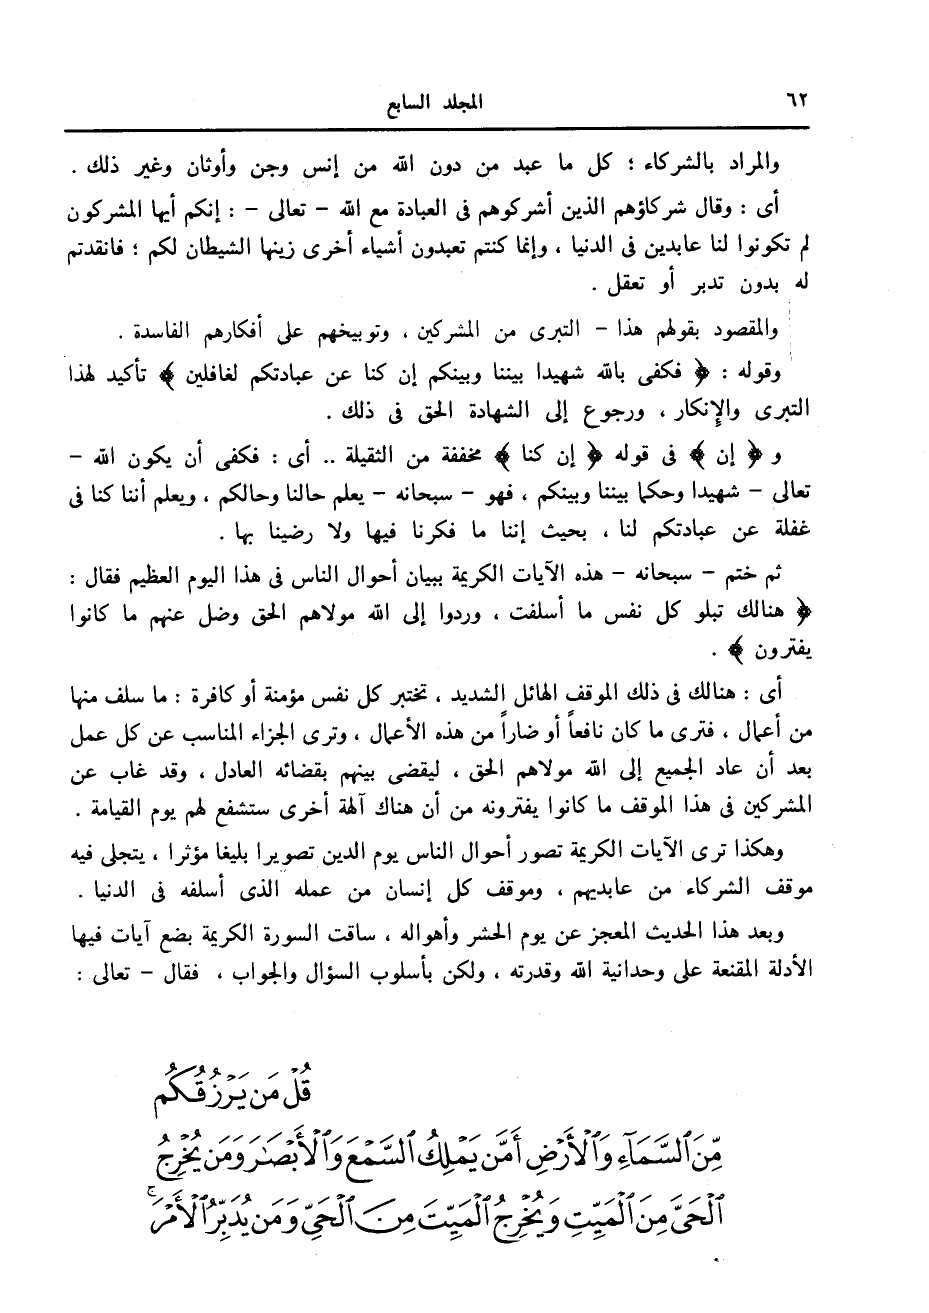 ٦٢ المجلد السابع
والمراد بالشركاء ؛ كل ما عبد من دون الله من إنس وجن وأوثان وغير ذلك .
أى : وقال شركاؤهم الذين أشركوهم فى العبادة مع الله – تعالى – : إنكم أيها المشركون
لم تكونوا لنا عابدين فى الدنيا ، وإنما كنتم تعبدون أشياء أخرى زينها الشيطان لكم ؛ فانقدتم
له بدون تدبر أو تعقل .
والمقصود بقولهم هذا – التبرى من المشركين ، وتوبيخهم على أفكارهم الفاسدة .
وقوله : ﴿ فكفى بالله شهيدا بيننا وبينكم إن كنا عن عبادتكم لغافلين ﴾ تأكيد لهذا
التبرى والإنكار ، ورجوع إلى الشهادة الحق فى ذلك .
و ﴿ إن ﴾ فى قوله ﴿ إن كنا ﴾ مخففة من الثقيلة .. أى : فكفى أن يكون الله –
تعالى – شهيدا وحكما بيننا وبينكم ، فهو – سبحانه – يعلم حالنا وحالكم ، ويعلم أننا كنا فى
غفلة عن عبادتكم لنا ، بحيث إننا ما فكرنا فيها ولا رضينا بها .
ثم ختم – سبحانه – هذه الآيات الكريمة ببيان أحوال الناس فى هذا اليوم العظيم فقال :
﴿ هنالك تبلو كل نفس ما أسلفت ، وردوا إلى الله مولاهم الحق وضل عنهم ما كانوا
يفترون ﴾ .
أى : هنالك فى ذلك الموقف الهائل الشديد ، تختبر كل نفس مؤمنة أو كافرة : ما سلف منها
من أعمال ، فترى ما كان نافعاً أو ضاراً من هذه الأعمال ، وترى الجزاء المناسب عن كل عمل
بعد أن عاد الجميع إلى الله مولاهم الحق ، ليقضى بينهم بقضائه العادل ، وقد غاب عن
المشركين فى هذا الموقف ما كانوا يفترونه من أن هناك آلهة أخرى ستشفع لهم يوم القيامة .
وهكذا ترى الآيات الكريمة تصور أحوال الناس يوم الدين تصويرا بليغا مؤثرا ، يتجلى فيه
موقف الشركاء من عابديهم ، وموقف كل إنسان من عمله الذى أسلفه فى الدنيا .
وبعد هذا الحديث المعجز عن يوم الحشر وأهواله ، ساقت السورة الكريمة بضع آيات فيها
الأدلة المقنعة على وحدانية الله وقدرته ، ولكن بأسلوب السؤال والجواب ، فقال – تعالى :
قُلْ مَن يَرْزُقُكُم
مِّنَ ٱلسَّمَآءِ وَٱلْأَرْضِ أَمَّن يَمْلِكُ ٱلسَّمْعَ وَٱلْأَبْصَٰرَ وَمَن يُخْرِجُ
ٱلْحَىَّ مِنَ ٱلْمَيِّتِ وَيُخْرِجُ ٱلْمَيِّتَ مِنَ ٱلْحَىِّ وَمَن يُدَبِّرُ ٱلْأَمْرَ ۚ